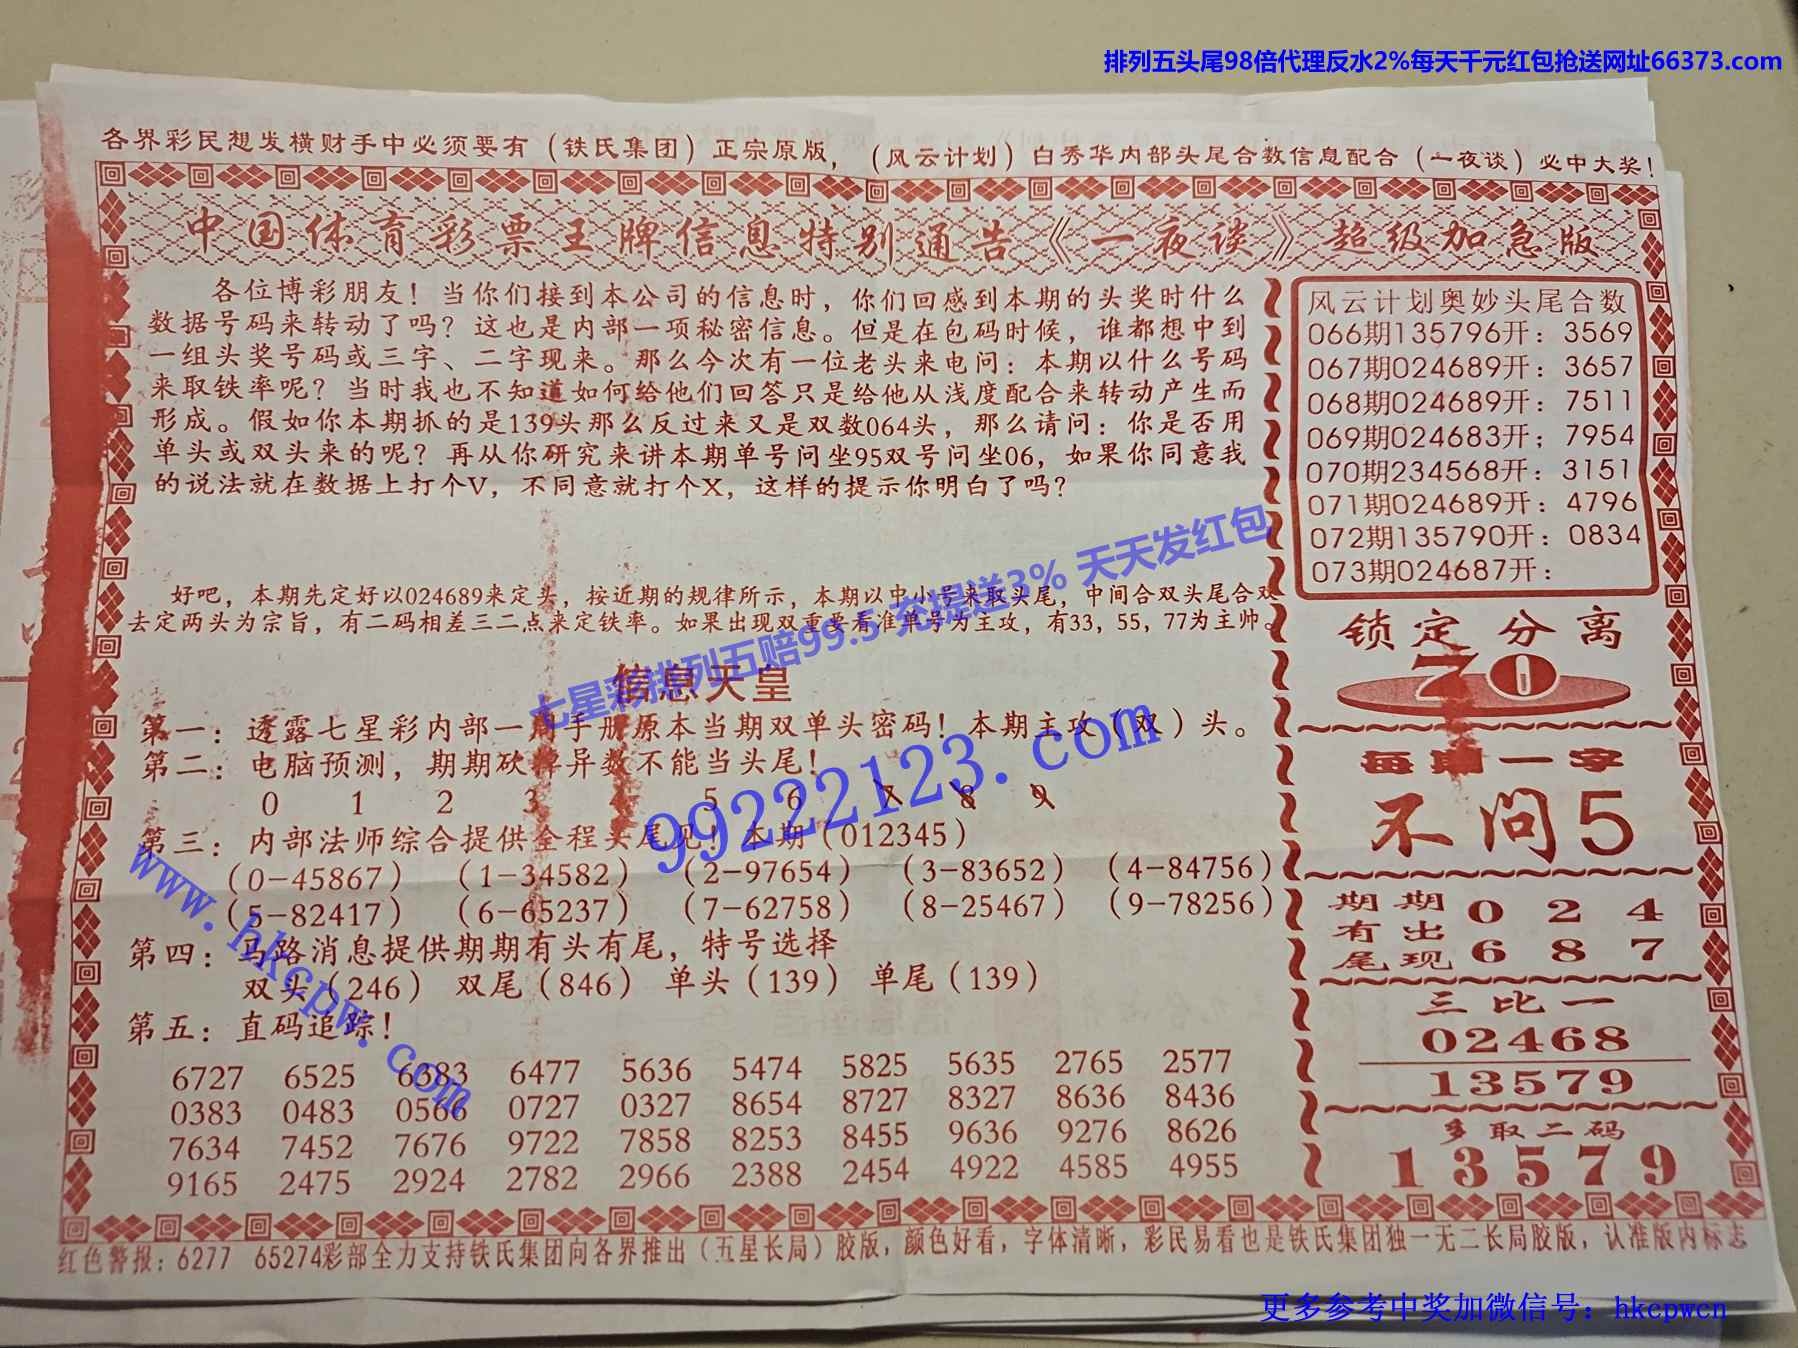 排列五头尾98倍代理反水2%每天千元红包抢送网址66373.com
各界彩民想发横财手中必须要有（铁氏集团）正宗原版，（风云计划）白秀华内部头尾合数信息配合（一夜谈）必中大奖！
中国体育彩票王牌信息特别通告《一夜谈》超级加急版
各位博彩朋友！当你们接到本公司的信息时，你们回感到本期的头奖时什么
数据号码来转动了吗？这也是内部一项秘密信息。但是在包码时候，谁都想中到
一组头奖号码或三字、二字现来。那么今次有一位老头来电问：本期以什么号码
来取铁率呢？当时我也不知道如何给他们回答只是给他从浅度配合来转动产生而
形成。假如你本期抓的是139头那么反过来又是双数064头，那么请问：你是否用
单头或双头来的呢？再从你研究来讲本期单号问坐95双号问坐06，如果你同意我
的说法就在数据上打个V，不同意就打个X，这样的提示你明白了吗？
好吧，本期先定好以024689来定头，按近期的规律所示，本期以中小号来取头尾，中间合双头尾合双
去定两头为宗旨，有二码相差三二点来定铁率。如果出现双重要看准单号为主攻，有33，55，77为主帅。
七星彩排列五赔99.5 充提送3% 天天发红包
信息天皇
第一：透露七星彩内部一周手册原本当期双单头密码！本期主攻（双）头。
第二：电脑预测，期期砍掉异数不能当头尾！
0 1 2 3 4 5 6 7 8 9
99222123.com
第三：内部法师综合提供全程头尾见！本期（012345）
（0-45867） （1-34582） （2-97654） （3-83652） （4-84756）
（5-82417） （6-65237） （7-62758） （8-25467） （9-78256）
www.hkcpw.com
第四：马路消息提供期期有头有尾，特号选择
双头（246） 双尾（846） 单头（139） 单尾（139）
第五：直码追踪！
6727 6525 6383 6477 5636 5474 5825 5635 2765 2577
0383 0483 0566 0727 0327 8654 8727 8327 8636 8436
7634 7452 7676 9722 7858 8253 8455 9636 9276 8626
9165 2475 2924 2782 2966 2388 2454 4922 4585 4955
风云计划奥妙头尾合数
066期135796开：3569
067期024689开：3657
068期024689开：7511
069期024683开；7954
070期234568开：3151
071期024689开：4796
072期135790开：0834
073期024687开：
锁定分离
70
每期一字
不问5
期期 0 2 4
有出
尾现 6 8 7
三比一
02468
13579
多取二码
13579
红色警报：6277 65274彩部全力支持铁氏集团向各界推出（五星长局）胶版，颜色好看，字体清晰，彩民易看也是铁氏集团独一无二长局胶版，认准版内标志
更多参考中奖加微信号：hkcpwcn